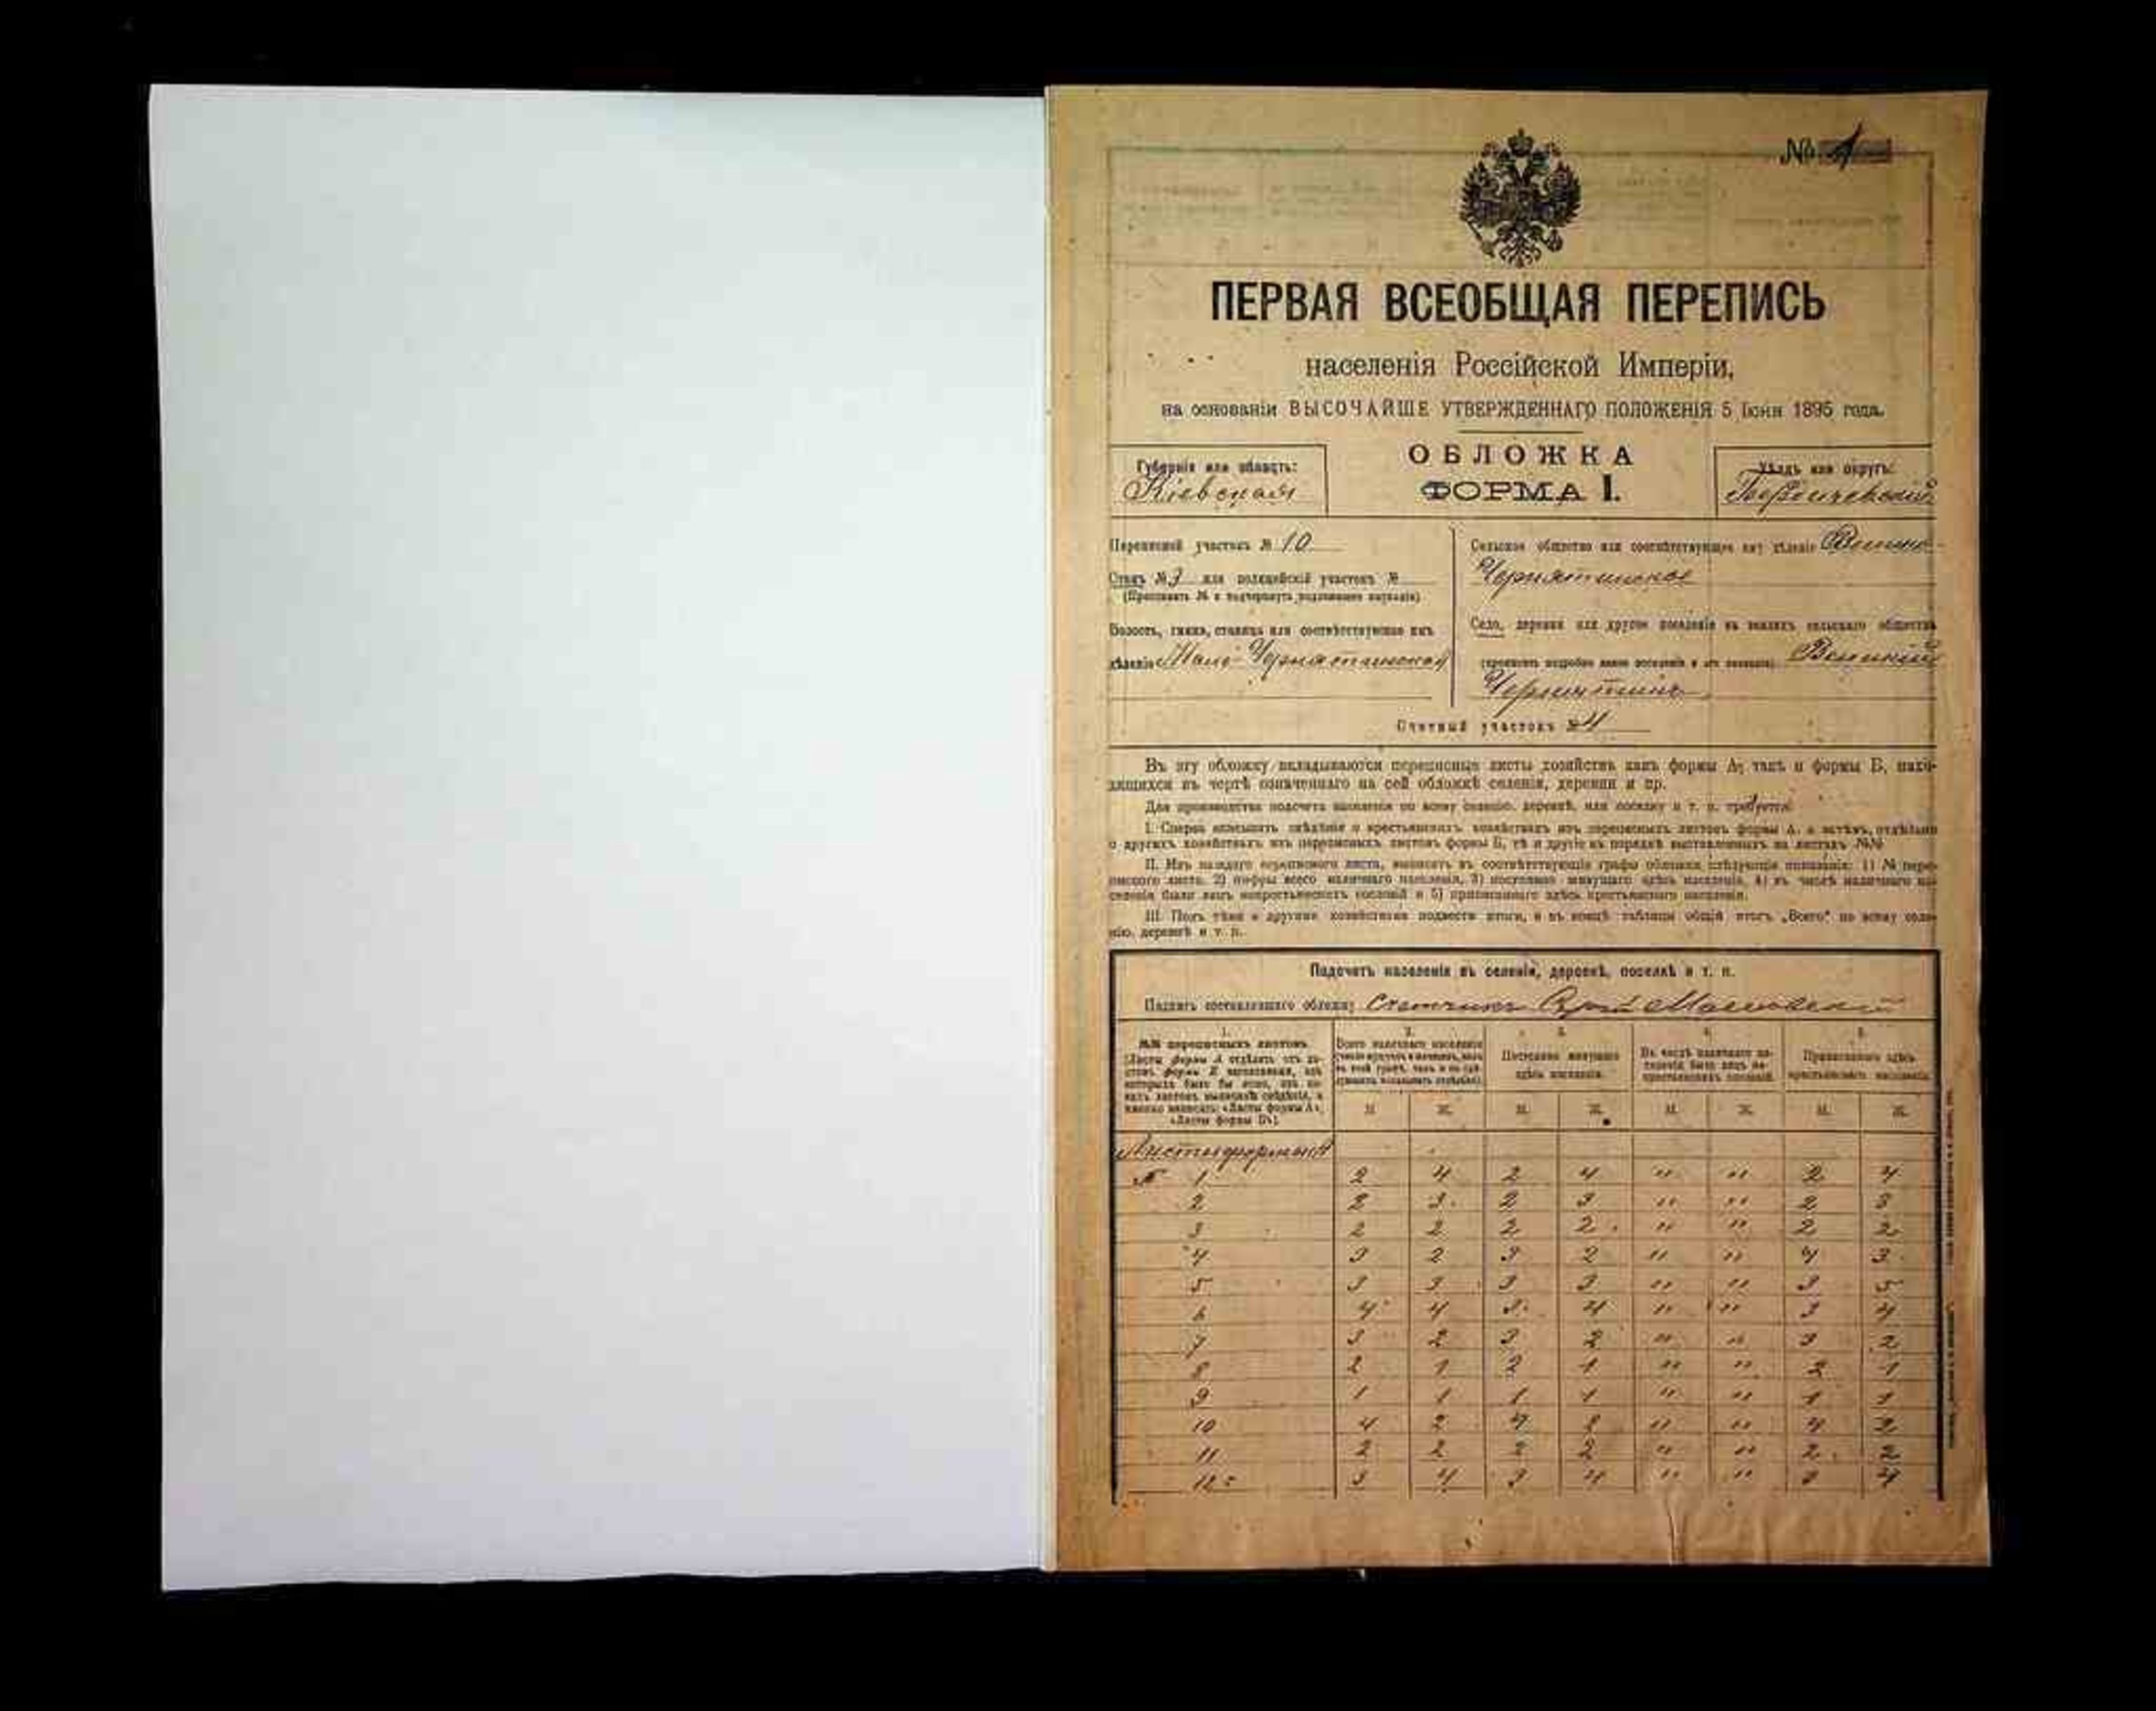 № 1
ПЕРВАЯ ВСЕОБЩАЯ ПЕРЕПИСЬ
населенія Россійской Имперіи,
на основаніи ВЫСОЧАЙШЕ УТВЕРЖДЕННАГО ПОЛОЖЕНІЯ 5 Іюня 1895 года.
ОБЛОЖКА
ФОРМА I.
Губернія или область:
Кіевская
Уѣздъ или округъ:
Бердичевскій
Переписной участокъ № 10
Станъ № 3 или полицейскій участокъ №
(Проставить № и подчеркнуть подлежащее названіе)
Волость, гмина, станица или соотвѣтствующее имъ
дѣленіе Мало-Чернятинская
Сельское общество или соотвѣтствующее ему дѣленіе Велико-
Чернятинское
Село, деревня или другое поселеніе на земляхъ сельскаго общества
(прописать подробно какое поселеніе и его названіе) Великій
Чернятинъ
Счетный участокъ № 4
Въ эту обложку вкладываются переписные листы хозяйствъ какъ формы А, такъ и формы Б, нахо-
дящихся въ чертѣ означеннаго на сей обложкѣ селенія, деревни и пр.
Для производства подсчета населенія по всему селенію, деревнѣ, или поселку и т. п. требуется:
I. Сперва вписывать свѣдѣнія о крестьянскихъ хозяйствахъ изъ переписныхъ листовъ формы А, а затѣмъ, отдѣльно
о другихъ хозяйствахъ изъ переписныхъ листовъ формы Б, тѣ и другіе въ порядкѣ выставленныхъ на листахъ №№
II. Изъ каждаго переписного листа, выписать въ соотвѣтствующія графы обложки слѣдующія показанія: 1) № пере-
писного листа, 2) цифры всего наличнаго населенія, 3) постоянно живущаго здѣсь населенія, 4) въ числѣ наличнаго на-
селенія было лицъ некрестьянскихъ сословій и 5) приписаннаго здѣсь крестьянскаго населенія.
III. Подъ тѣми и другими хозяйствами подвести итоги, и въ концѣ таблицы общій итогъ „Всего“ по всему селе-
нію, деревнѣ и т. п.
Подсчетъ населенія въ селеніи, деревнѣ, поселкѣ и т. п.
Подпись составлявшаго обложку Счетчикъ
1. 2. 3. 4. 5.
№№ переписныхъ листовъ.
(Листы формы А отдѣлить отъ ли-
стовъ формы Б
«Листы формы Б»).
Всего наличнаго населенія
Постоянно живущаго
здѣсь населенія.
Въ числѣ наличнаго на-
селенія было лицъ не-
крестьянскихъ сословій.
Приписаннаго здѣсь
крестьянскаго населенія.
М. Ж. М. Ж. М. Ж. М. Ж.
Листы формы А
№ 1 2 4 2 4 " " 2 4
2 2 3 2 3 " " 2 3
3 2 2 2 2 " " 2 2
4 3 2 3 2 " " 4 3
5 3 3 3 3 " " 3 5
6 4 4 3 4 " " 3 4
7 3 2 3 2 " " 3 2
8 2 1 2 1 " " 2 1
9 1 1 1 1 " " 1 1
10 4 2 4 2 " " 4 2
11 2 2 2 2 " " 2 2
12 3 4 3 4 " " 3 4